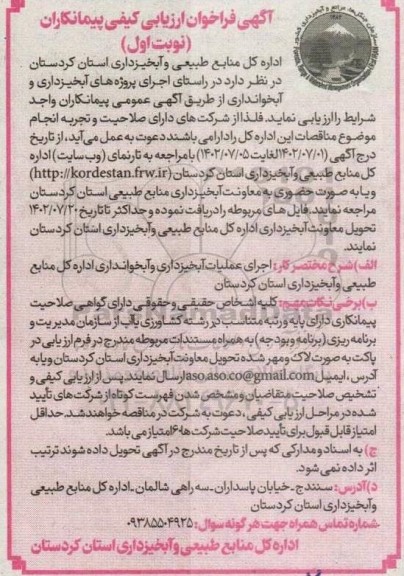 آگهی فراخوان ارزیابی کیفی پیمانکاران
(نوبت اول)
اداره کل منابع طبیعی و آبخیزداری استان کردستان
در نظر دارد در راستای اجرای پروژه های آبخیزداری و
آبخوانداری از طریق آگهی عمومی پیمانکاران واجد
شرایط را ارزیابی نماید. فلذا از شرکت های دارای صلاحیت و تجربه انجام
موضوع مناقصات این اداره کل را دارا می باشند دعوت به عمل می آید، از تاریخ
درج آگهی (۱۴۰۲/۰۷/۰۱ لغایت ۱۴۰۲/۰۷/۰۵) با مراجعه به تارنمای (وب سایت) اداره
کل منابع طبیعی و آبخیزداری استان کردستان (http://kordestan.frw.ir)
و یا به صورت حضوری به معاونت آبخیزداری منابع طبیعی استان کردستان
مراجعه نمایند. فایل های مربوطه را دریافت نموده و حداکثر تا تاریخ ۱۴۰۲/۰۷/۲۰
تحویل معاونت آبخیزداری اداره کل منابع طبیعی و آبخیزداری استان کردستان
نمایند.
الف) شرح مختصر کار: اجرای عملیات آبخیزداری و آبخوانداری اداره کل منابع
طبیعی و آبخیزداری استان کردستان
ب) برخی نکات مهم: کلیه اشخاص حقیقی و حقوقی دارای گواهی صلاحیت
پیمانکاری دارای پایه و رتبه متناسب در رشته کشاورزی یا آب از سازمان مدیریت و
برنامه ریزی (برنامه و بودجه) به همراه مستندات مربوطه مندرج در فرم ارزیابی در
پاکت به صورت لاک و مهر شده تحویل معاونت آبخیزداری استان کردستان و یا به
آدرس ، ایمیل aso.aso.co@gmail.com ارسال نمایند پس از ارزیابی کیفی و
تشخیص صلاحیت متقاضیان و مشخص شدن فهرست کوتاه از شرکت های تأیید
شده در مراحل ارزیابی کیفی ، دعوت به شرکت در مناقصه خواهند شد. حداقل
امتیاز قابل قبول برای تأیید صلاحیت شرکت ها ۶۰ امتیاز می باشد.
ج) به اسناد و مدارکی که پس از تاریخ مندرج در آگهی تحویل داده شوند ترتیب
اثر داده نمی شود.
د) آدرس: سنندج ـ خیابان پاسداران ـ سه راهی شالمان ـ اداره کل منابع طبیعی
و آبخیزداری استان کردستان
شماره تماس همراه جهت هر گونه سوال: ۰۹۳۸۵۵۰۴۹۲۵
اداره کل منابع طبیعی و آبخیزداری استان کردستان